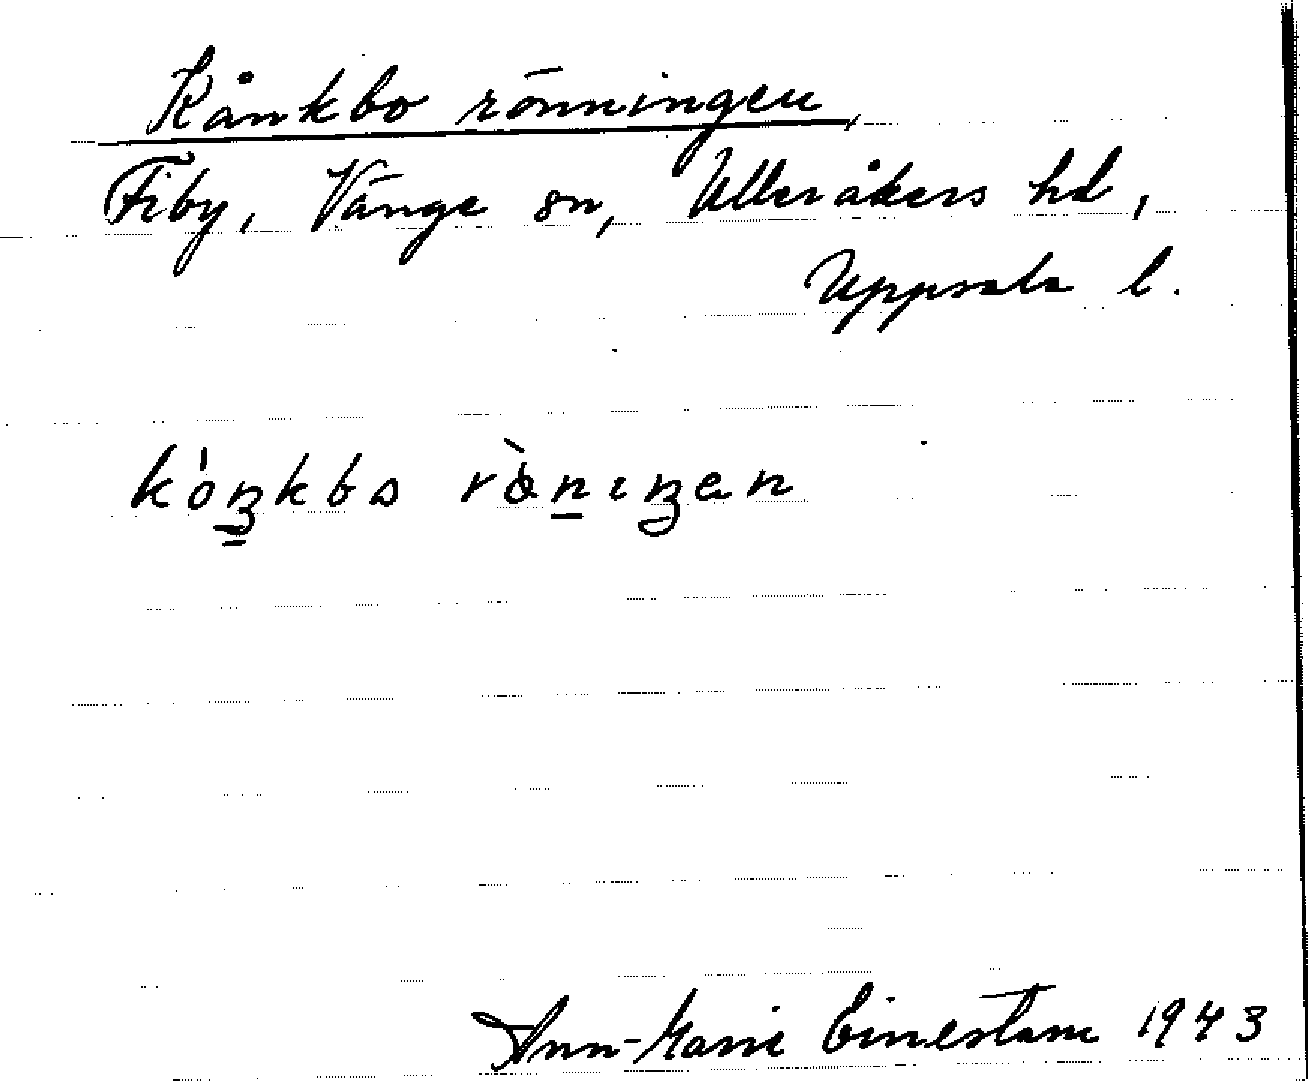 Kånkbo rönningen,
Fiby, Vänge sn, Ulleråkers hd,
Uppsala l.
Ann-Marie Einestam 1943